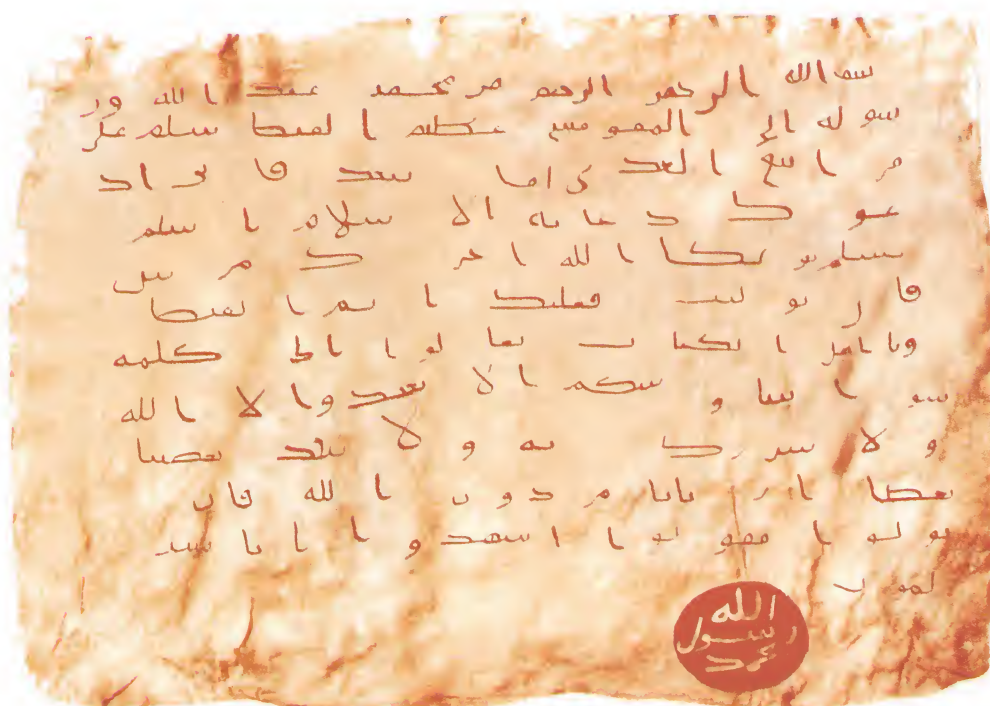 بسم الله الرحمن الرحيم من محمد عبد الله ور
سوله الى المقوقس عظيم القبط سلم على
من اتبع الهدى اما بعد فانى اد
عوك دعايه الاسلام اسلم
تسلم يوتك الله اجرك مرتين
فان توليت فعليك اثم القبط
ويا اهل الكتاب تعالوا الى كلمه
سوا بيننا وبينكم الا نعبد وا الا الله
ولا نشرك به ولا يتخذ بعضنا
بعضا اربابا من دون الله فان
تولوا فقولوا اشهدوا بانا مسـ
لمون
الله
رسول
محمد